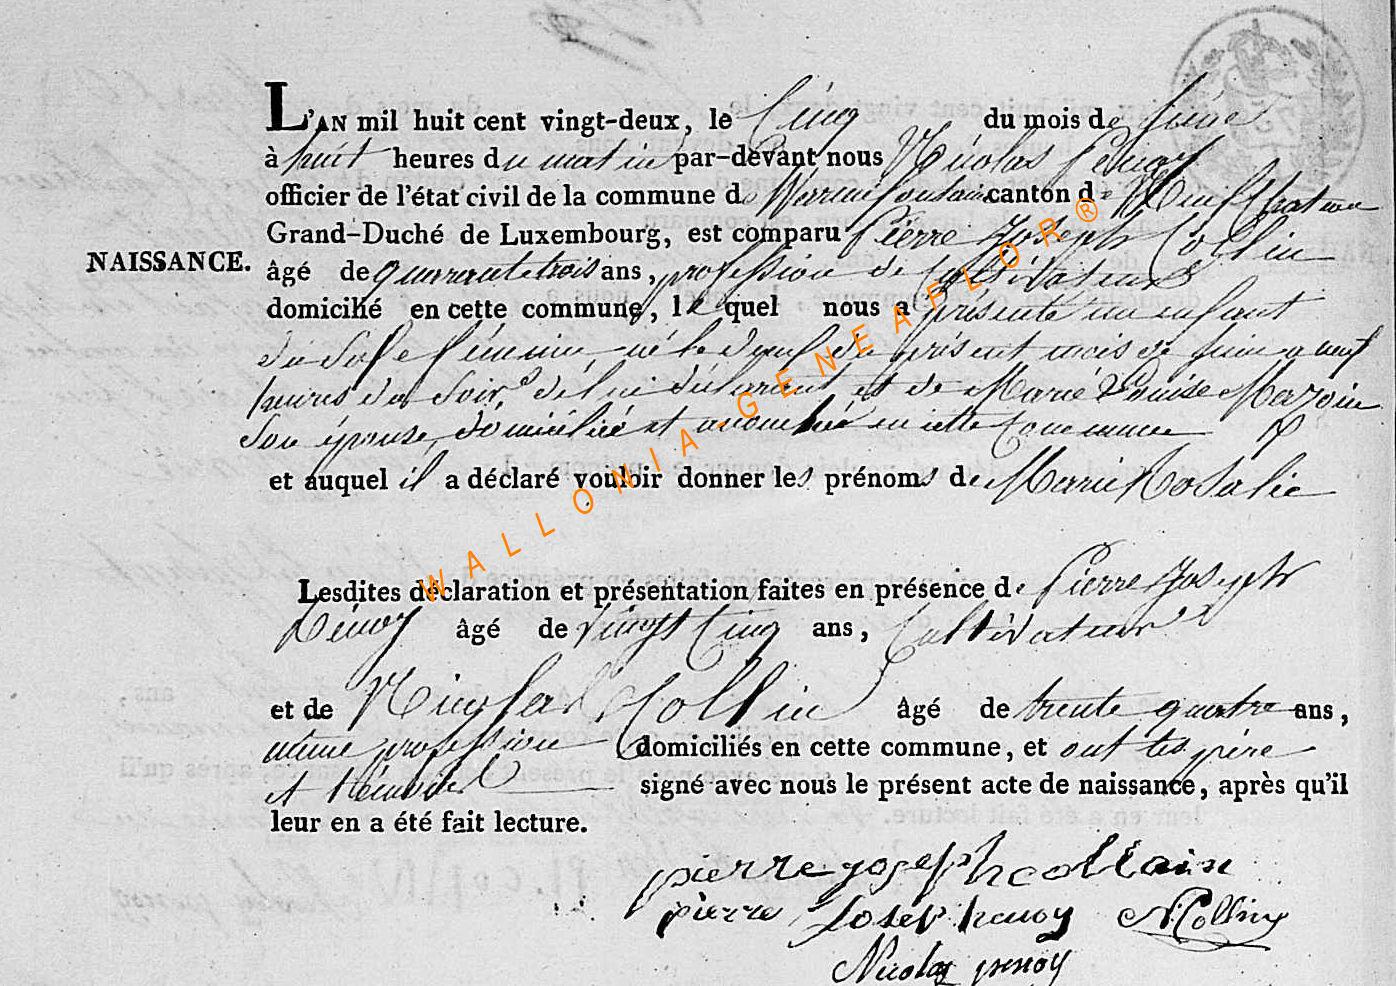 L'AN mil huit cent vingt-deux, le Cinq du mois de Juin
à huit heures du matin par-devant nous Nicolas
officier de l'état civil de la commune de canton de Neufchateau
Grand-Duché de Luxembourg, est comparu Pierre Joseph Collin
NAISSANCE.
âgé de quarante trois ans, profession de Cultivateur
domicilié en cette commune, lequel nous a présenté un enfant
du Sexe féminin, né le du présent mois de Juin a neuf
heures du Soir, de lui déclarant et de Marie Louise
Son épouse, domiciliée et accouchée en cette Commune
et auquel il a déclaré vouloir donner les prénoms de Marie Rosalie
Lesdites déclaration et présentation faites en présence de Pierre Joseph
âgé de vingt Cinq ans, Cultivateur
et de Nicolas Collin âgé de trente quatre ans,
même profession domiciliés en cette commune, et ont les père
et témoins signé avec nous le présent acte de naissance, après qu'il
leur en a été fait lecture.
pierre joseph collain
pierre Joseph N: Collin
Nicolas
WALLONIA-GENEAFLOR®